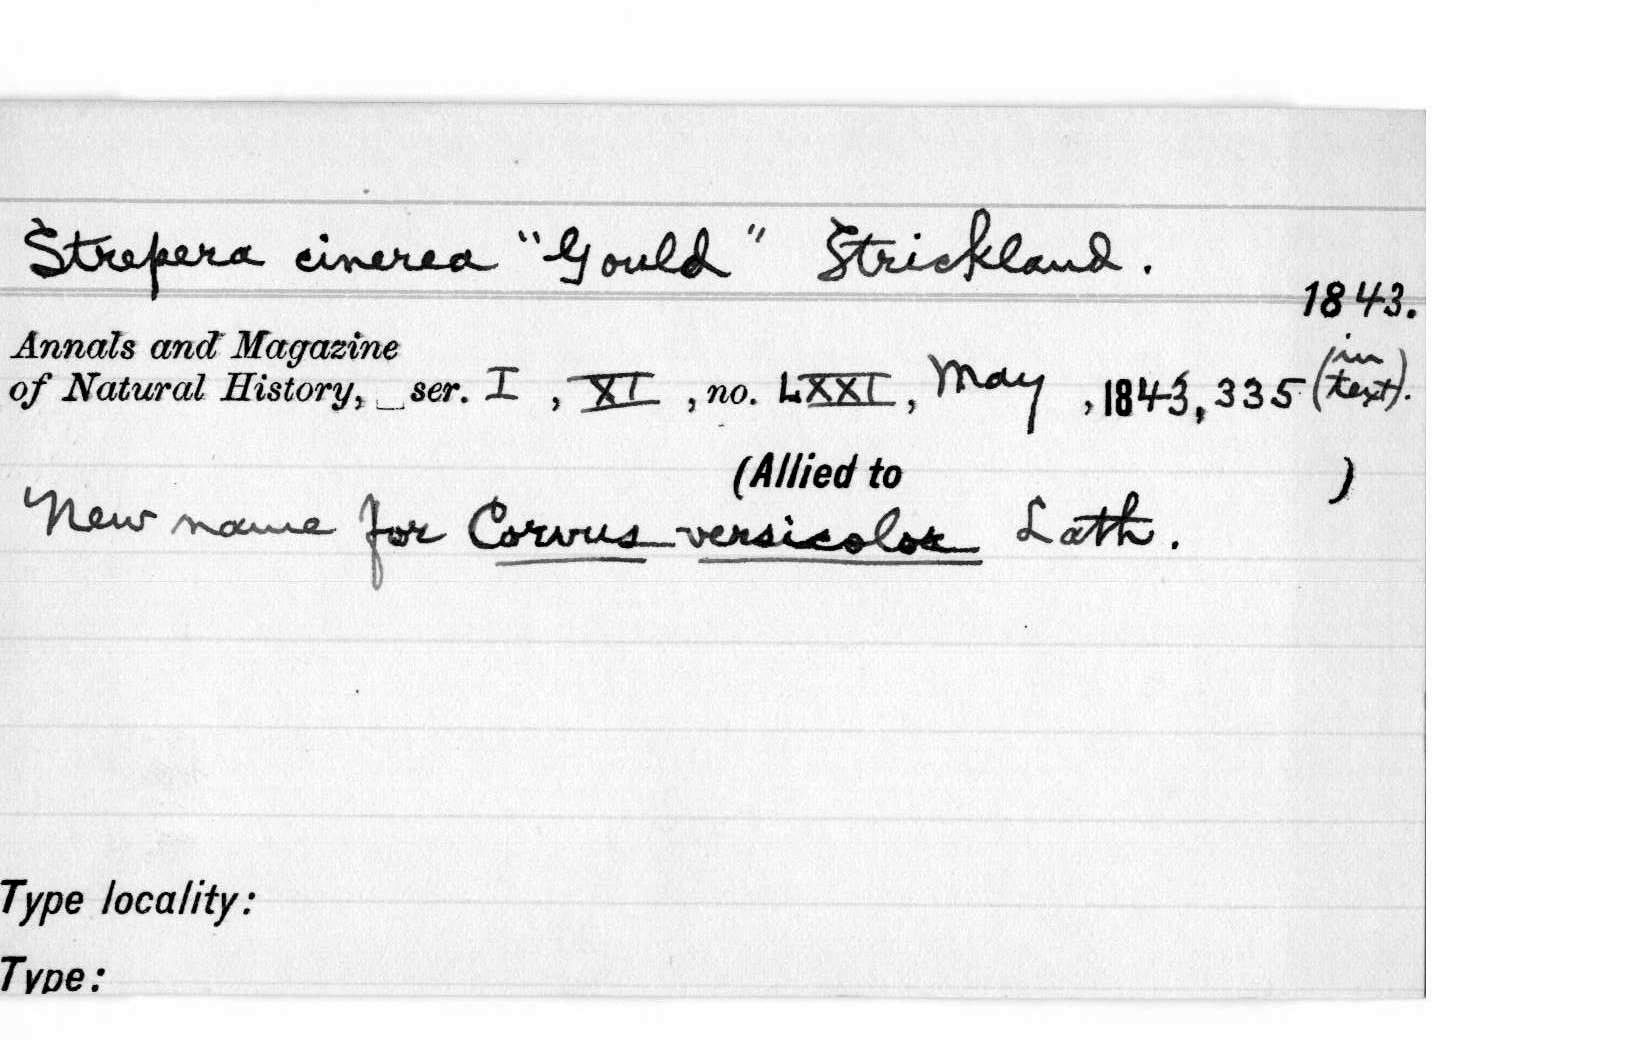 Strepera cinerea "Gould" Strickland.
1843.
Annals and Magazine
of Natural History, ser. I, XI, no. LXXI, May, 1843, 335 (in text).
(Allied to )
New name for Corvus versicolor Lath.
Type locality:
Type: